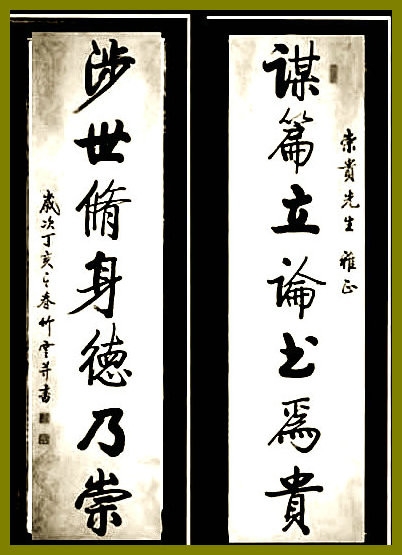 崇貴先生 雅正
謀篇立論為貴
涉世脩身德乃崇
歲次丁亥之春竹雲并書